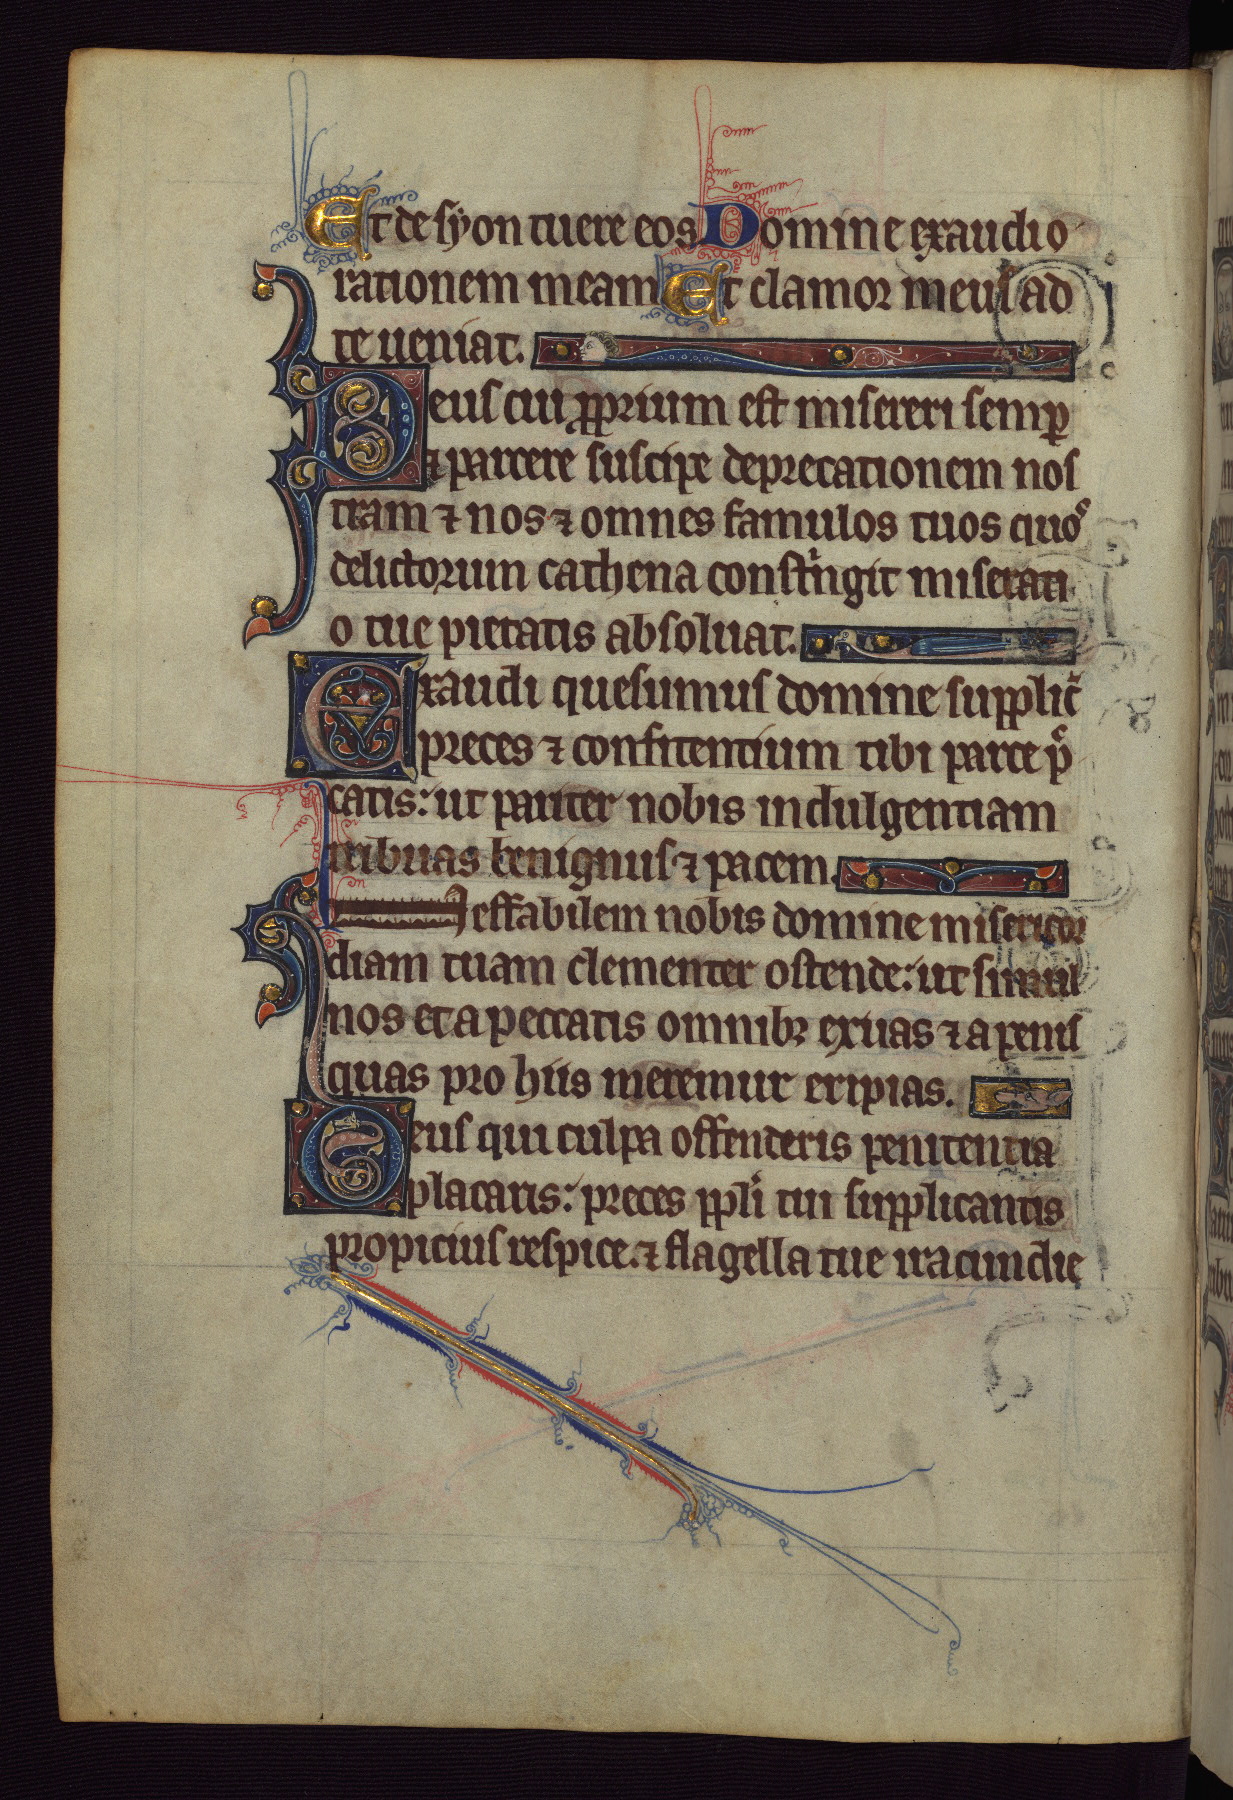 Et de syon tuere eos Domine exaudi o
rationem meam Et clamor meus ad
te ueniat.
Deus cui pprium est misereri semp
& parcere suscipe deprecationem nos
tram ⁊ nos ⁊ omnes famulos tuos quoꝰ
delictorum cathena constͥngit miserati
o tue pietatis absoluat.
Exaudi quesumus domine supplic̄
preces ⁊ confitentium tibi parce p̄
catis: ut pariter nobis indulgentiam
tribuas benignus ⁊ pacem.
Ieffabilem nobis domine misericor
diam tuam clementer ostende: ut simul
nos et a peccatis omnibꝫ exuas ⁊ a penis
quas pro hiis meremur eripias.
Deus qui culpa offenderis penitentia
placaris: preces ppli tui supplicantis
propicius respice. ⁊ flagella tue iracundie